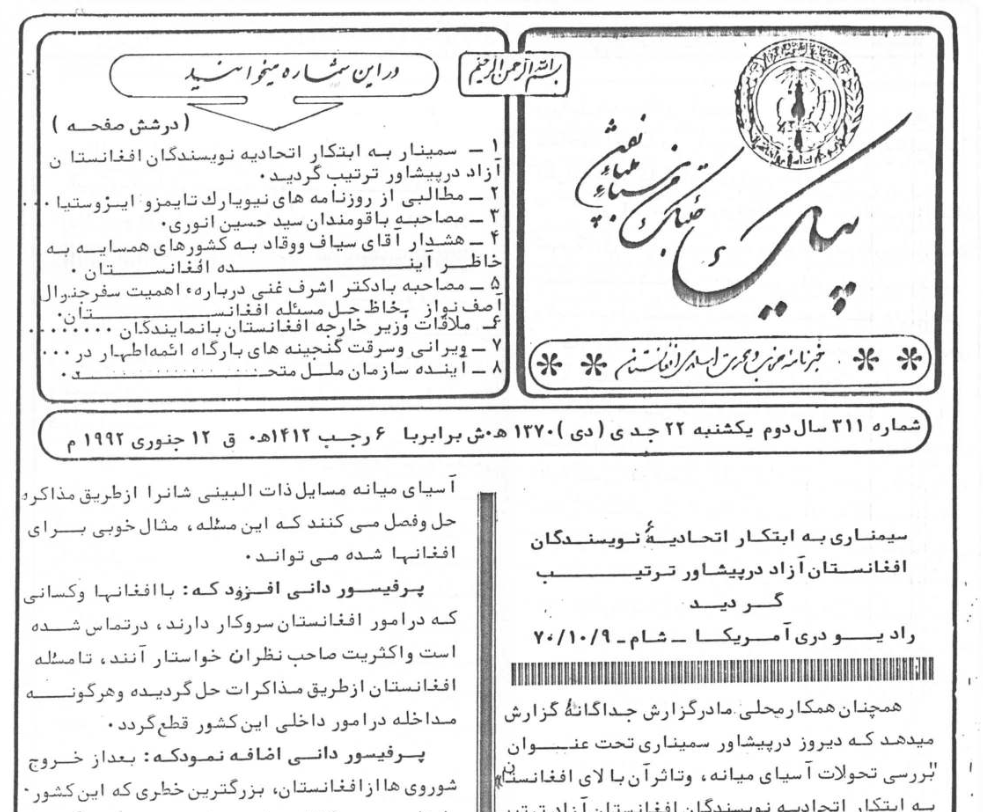 بسم الله الرحمن الرحیم
پیک
خبرنامه حزب وحدت اسلامی افغانستان
در این شماره میخوانید
( درشش صفحـه )
۱ ـ سمینار بـه ابتکار اتحادیه نویسندگان افغانستا ن
آزاد درپیشاور ترتیب گردید.
۲ ـ مطالبی از روزنامه های نیویارك تایمزو ایـزوستیا ...
۳ ـ مصاحبـه باقومندان سید حسین انوری.
۴ ـ هشـدار آقای سیاف ووقاد بـه کشورهای همسایـه بـه
خاظـر آینــده افغانستان .
۵ ـ مصاحبه بادکتر اشرف غنی درباره اهمیت سفرجنرال
آصف نواز بخاظ حل مسئله افغانستان.
۶ـ ملاقات وزیر خارجه افغانستان بانمایندگان ........
۷ ـ ویرانی وسرقت گنجینه های بارگاه ائمه اطهار در ...
۸ ـ آینده سازمان ملـل متحـد .
شماره ۳۱۱ سال دوم یکشنبه ۲۲ جـد ی ( دی ) ۱۳۷۰ هـ.ش برابربا ۶ رجـب ۱۴۱۲هـ. ق ۱۲ جنوری ۱۹۹۲ م
سیمنـاری بـه ابتکـار اتحـادیـهٔ نـویسنــدگان
افغانستـان آزاد درپیشاور تـرتیــب
گــر دیـد
راد یــو دری آمـریکـا ـ شـام ـ ۷۰/۱۰/۹
همچنان همکار محلی مادرگزارش جداگانهٔ گزارش
میدهـد کـه دیروز درپیشاور سمیناری تحت عنــوان
"بررسی تحولات آسیای میانه، وتاثرآن با لای افغانستان"
بـه ابتکار اتحادیـه نویسندگان افغانستان آزاد ترتیب
آسیای میانه مسایل ذات البینی شانرا ازطریق مذاکره
حل وفصل مـی کنند کـه این مسٔله، مثال خوبی بــرای
افغانهـا شـده مـی توانـد.
پـرفیسـور دانـی افـزود کـه: باافغانهـا وکسانی
کـه درامور افغانستان سروکار دارند، درتماس شــده
است واکثریت صاحب نظران خواستار آنند، تامسٔله
افغانستان ازطریق مـذاکرات حل گردیـده وهرگونــه
مـداخله درامور داخلی این کشور قطع گردد.
پـرفیسور دانـی اضافـه نمودکـه: بعداز خـروج
شوروی هااز افغانستان، بزرگترین خطری که این کشور